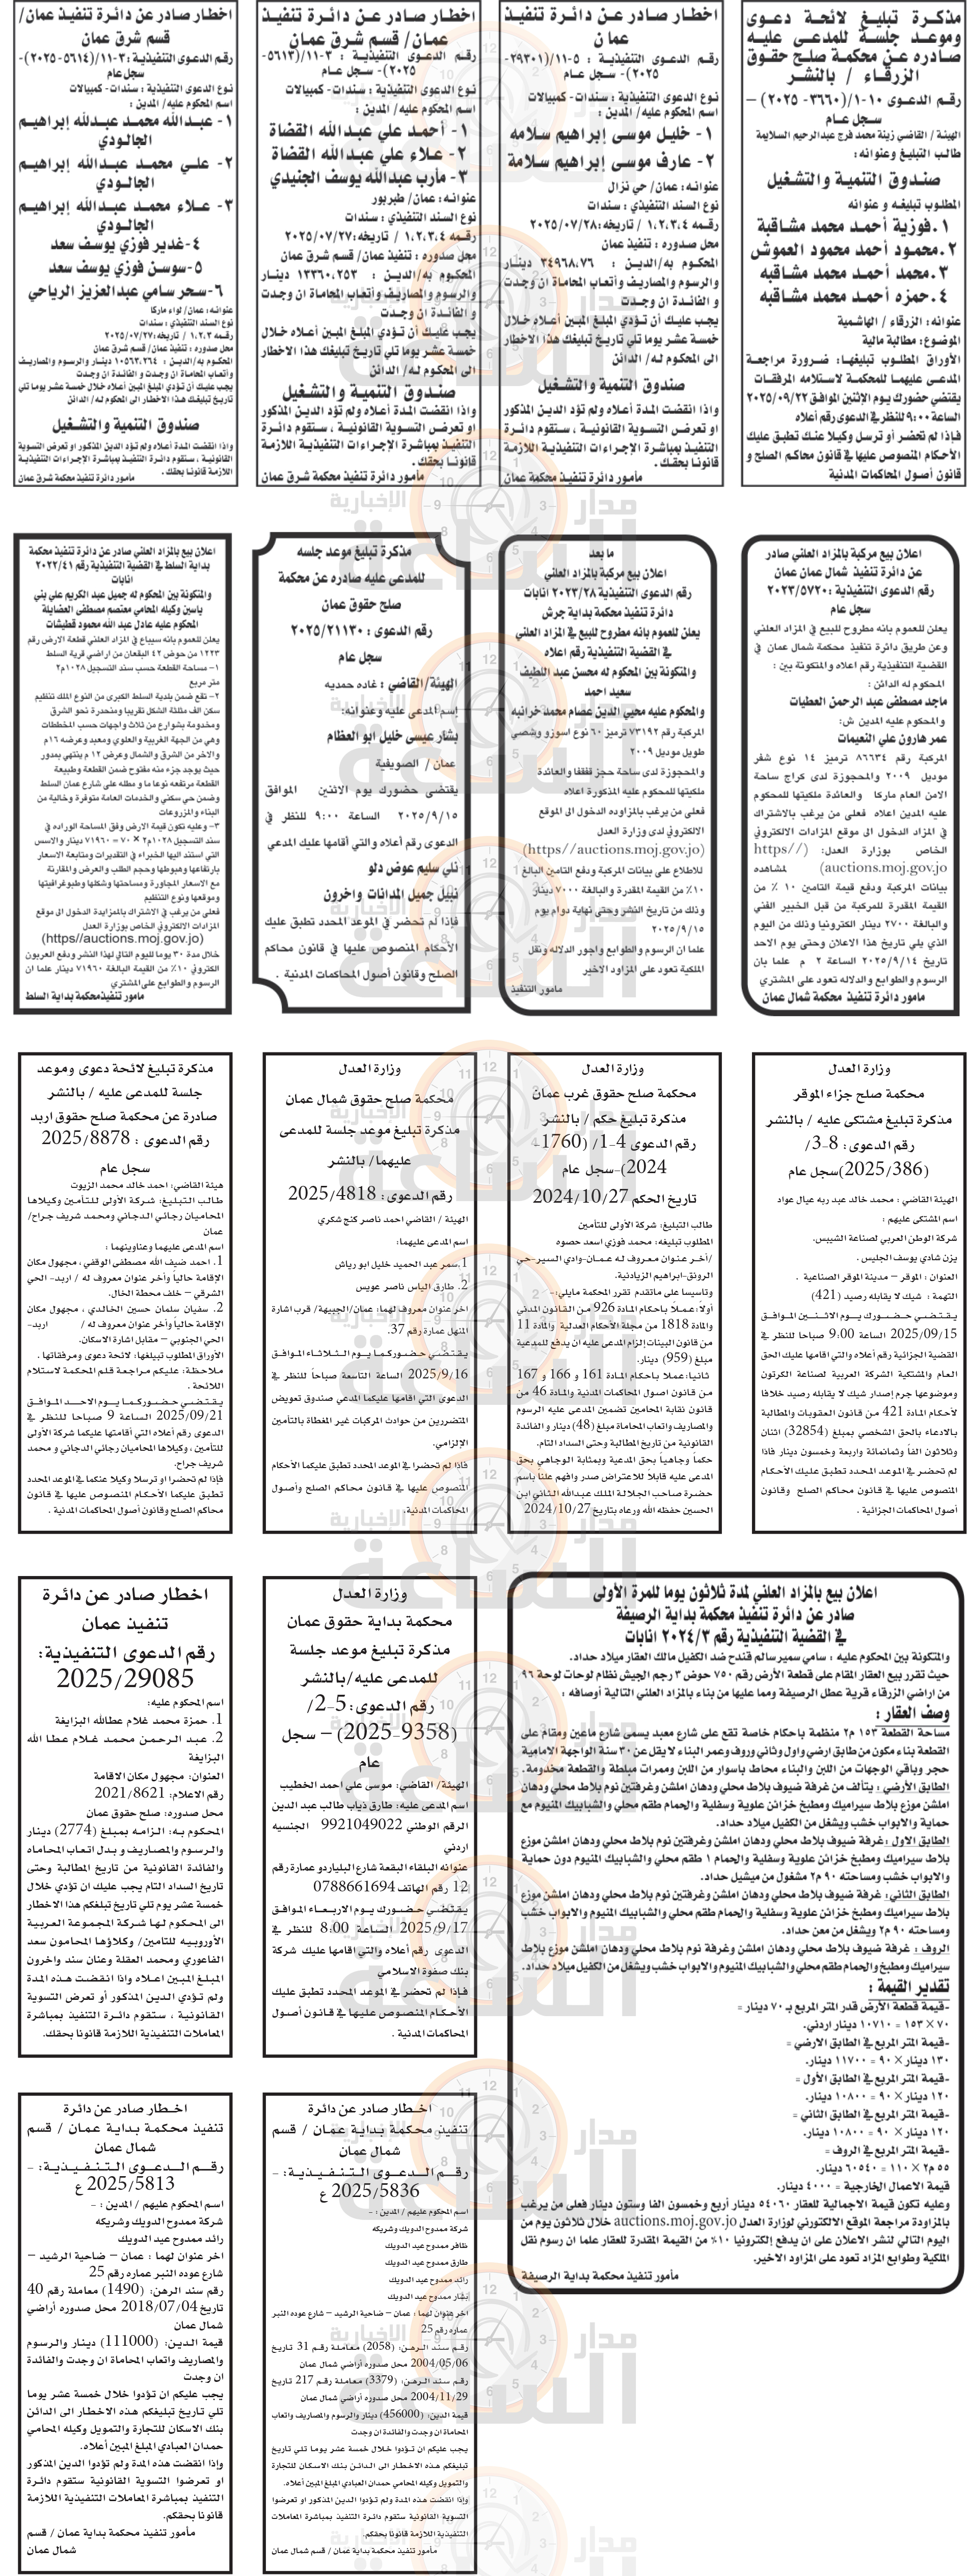 مذكرة تبليغ لائحة دعوى
وموعد جلسة للمدعى عليه
صادره عن محكمة صلح حقوق
الزرقاء / بالنشر
رقم الدعوى ١٠-١/(٣٦٦٠- ٢٠٢٥) –
سجل عام
الهيئة / القاضي زينة محمد فرج عبدالرحيم السلايمة
طالب التبليغ وعنوانه :
صندوق التنمية والتشغيل
المطلوب تبليغه و عنوانه
١.فوزية أحمد محمد مشاقبة
٢.محمود أحمد محمود العموش
٣.محمد أحمد محمد مشاقبه
٤.حمزه أحمد محمد مشاقبه
عنوانه: الزرقاء / الهاشمية
الموضوع: مطالبة مالية
الأوراق المطلوب تبليغها: ضرورة مراجعة
المدعى عليهما للمحكمة لاستلامه المرفقات
يقتضي حضورك يوم الإثنين الموافق ٢٠٢٥/٠٩/٢٢
الساعة ٩:٠٠ للنظر في الدعوى رقم أعلاه
فإذا لم تحضر أو ترسل وكيلا عنك تطبق عليك
الأحكام المنصوص عليها في قانون محاكم الصلح و
قانون أصول المحاكمات المدنية
اخطار صادر عن دائرة تنفيذ
عمان
رقم الدعوى التنفيذية : ٥-١١/(٢٩٣٠١-
٢٠٢٥)- سجل عـام
نوع الدعوى التنفيذية : سندات- كمبيالات
اسم المحكوم عليه/ المدين :
١- خليل موسى إبراهيم سلامه
٢- عارف موسى إبراهيم سلامة
عنوانه: عمان/ حي نزال
نوع السند التنفيذي : سندات
رقمه ١،٢،٣،٤ / تاريخه:٢٠٢٥/٠٧/٢٨
محل صدوره : تنفيذ عمان
المحكوم به/الدين : ٣٤٩٦٨،٧٦ دينار
والرسوم والمصاريف وأتعاب المحاماة ان وجدت
و الفائدة ان وجدت
يجب عليك أن تؤدي المبلغ المبين أعلاه خلال
خمسة عشر يوما تلي تاريخ تبليغك هذا الاخطار
الى المحكوم له/ الدائن
صندوق التنمية والتشغيل
واذا انقضت المدة أعلاه ولم تؤد الدين المذكور
او تعرض التسوية القانونية ، ستقوم دائرة
التنفيذ بمباشرة الإجراءات التنفيذية اللازمة
قانونا بحقك .
مامور دائرة تنفيذ محكمة عمان
اخطار صادر عن دائرة تنفيذ
عمان/ قسم شرق عمان
رقم الدعوى التنفيذية : ٣-١١/(٥٦١٣-
٢٠٢٥)- سجل عام
نوع الدعوى التنفيذية : سندات- كمبيالات
اسم المحكوم عليه/ المدين :
١- أحمد علي عبدالله القضاة
٢- علاء علي عبدالله القضاة
٣- مأرب عبدالله يوسف الجنيدي
عنوانه: عمان/ طبربور
نوع السند التنفيذي : سندات
رقمه ١،٢،٣،٤ / تاريخه:٢٠٢٥/٠٧/٢٧
محل صدوره : تنفيذ عمان/ قسم شرق عمان
المحكوم به/الدين : ١٣٣٦٠،٢٥٣ دينار
والرسوم والمصاريف وأتعاب المحاماة ان وجدت
و الفائدة ان وجدت
يجب عليك أن تؤدي المبلغ المبين أعلاه خلال
خمسة عشر يوما تلي تاريخ تبليغك هذا الاخطار
الى المحكوم له/ الدائن
صندوق التنمية والتشغيل
واذا انقضت المدة أعلاه ولم تؤد الدين المذكور
او تعرض التسوية القانونية ، ستقوم دائرة
التنفيذ بمباشرة الإجراءات التنفيذية اللازمة
قانونا بحقك .
مأمور دائرة تنفيذ محكمة شرق عمان
اخطار صادر عن دائرة تنفيذ عمان/
قسم شرق عمان
رقم الدعوى التنفيذية : ٣-١١/(٥٦١٤-٢٠٢٥)-
سجل عام
نوع الدعوى التنفيذية : سندات- كمبيالات
اسم المحكوم عليه/ المدين :
١- عبدالله محمد عبدالله إبراهيم
الجالودي
٢- علي محمد عبدالله إبراهيم
الجالودي
٣- علاء محمد عبدالله إبراهيم
الجالودي
٤-غدير فوزي يوسف سعد
٥-سوسن فوزي يوسف سعد
٦-سحر سامي عبدالعزيز الرياحي
عنوانه: عمان/ لواء ماركا
نوع السند التنفيذي : سندات
رقمه ١،٢،٣ / تاريخه:٢٠٢٥/٠٧/٢٧
محل صدوره : تنفيذ عمان/ قسم شرق عمان
المحكوم به/الدين : ١٠٥٦٣،٣٦٤ دينار والرسوم والمصاريف
وأتعاب المحاماة ان وجدت و الفائدة ان وجدت
يجب عليك أن تؤدي المبلغ المبين أعلاه خلال خمسة عشر يوما تلي
تاريخ تبليغك هذا الاخطار الى المحكوم له/ الدائن
صندوق التنمية والتشغيل
واذا انقضت المدة أعلاه ولم تؤد الدين المذكور او تعرض التسوية
القانونية ، ستقوم دائرة التنفيذ بمباشرة الإجراءات التنفيذية
اللازمة قانونا بحقك .
مأمور دائرة تنفيذ محكمة شرق عمان
اعلان بيع مركبة بالمزاد العلني صادر
عن دائرة تنفيذ شمال عمان عمان
رقم الدعوى التنفيذية :٢٠٢٣/٥٧٢٠
سجل عام
يعلن للعموم بأنه مطروح للبيع في المزاد العلني
وعن طريق دائرة تنفيذ محكمة شمال عمان في
القضية التنفيذية رقم اعلاه والمتكونة بين :
المحكوم له الدائن :
ماجد مصطفى عبد الرحمن العطيات
والمحكوم عليه المدين ش:
عمر هارون علي النعيمات
المركبة رقم ٨٦٦٣٤ ترميز ١٤ نوع شفر
موديل ٢٠٠٩ والمحجوزة لدى كراج ساحة
الامن العام ماركا والعائدة ملكيتها للمحكوم
عليه المدين اعلاه فعلى من يرغب بالاشتراك
في المزاد الدخول الى موقع المزادات الالكتروني
الخاص بوزارة العدل: (https//
auctions.moj.gov.jo) لمشاهده
بيانات المركبة ودفع قيمة التامين ١٠ ٪ من
القيمة المقدرة للمركبة من قبل الخبير الفني
والبالغة ٢٧٠٠ دينار الكترونيا وذلك من اليوم
الذي يلي تاريخ هذا الاعلان وحتى يوم الاحد
تاريخ ٢٠٢٥/٩/١٤ الساعة ٢ م علما بان
الرسوم والطوابع والدلاله تعود على المشتري
مامور دائرة تنفيذ محكمة شمال عمان
ما بعد
اعلان بيع مركبة بالمزاد العلني
رقم الدعوى التنفيذية ٢٠٢٣/٢٨ انابات
دائرة تنفيذ محكمة بداية جرش
يعلن للعموم بانه مطروح للبيع في المزاد العلني
في القضية التنفيذية رقم اعلاه
والمتكونة بين المحكوم له محسن عبد اللطيف
سعيد احمد
والمحكوم عليه محيي الدين عصام محمد خرابنه
المركبة رقم ٧٣١٩٢ ترميز ٦٠ نوع اسوزو وشصي
طويل موديل ٢٠٠٩
والمحجوزة لدى ساحة حجز قفقفا والعائدة
ملكيتها للمحكوم عليه المذكورة اعلاه
فعلى من يرغب بالمزاوده الدخول الى الموقع
الالكتروني لدى وزارة العدل
(https//auctions.moj.gov.jo)
للاطلاع على بيانات المركبة ودفع التامين البالغ
١٠٪ من القيمة المقدرة والبالغة ٧٠٠٠ دينار
وذلك من تاريخ النشر وحتى نهاية دوام يوم
٢٠٢٥/٩/١٥
علما ان الرسوم والطوابع واجور الدلاله ونقل
الملكية تعود على المزاود الاخير
مامور التنفيذ
مذكرة تبليغ موعد جلسه
للمدعى عليه صادره عن محكمة
صلح حقوق عمان
رقم الدعوى : ٢٠٢٥/٢١١٣٠
سجل عام
الهيئة/ القاضي : غاده حمديه
إسم المدعى عليه وعنوانه:
بشار عيسى خليل ابو العظام
عمان / الصويفية
يقتضى حضورك يوم الاثنين الموافق
٢٠٢٥/٩/١٥ الساعة ٩:٠٠ للنظر في
الدعوى رقم أعلاه والتي أقامها عليك المدعي
نلي سليم عوض دلو
نبيل جميل المدانات واخرون
فإذا لم تحضر في الموعد المحدد تطبق عليك
الأحكام المنصوص عليها في قانون محاكم
الصلح وقانون أصول المحاكمات المدنية .
اعلان بيع بالمزاد العلني صادر عن دائرة تنفيذ محكمة
بداية السلط في القضية التنفيذية رقم ٢٠٢٢/٤١
انابات
والمتكونة بين المحكوم له جميل عبد الكريم علي بني
ياسين وكيله المحامي معتصم مصطفى العضايلة
المحكوم عليه عادل عبد الله محمود قطيشات
يعلن للعموم بانه سيباع في المزاد العلني قطعة الارض رقم
١٢٢٣ من حوض ٤٢ البقعان من اراضي قرية السلط
١- مساحة القطعة حسب سند التسجيل ١٠٢٨م٢
متر مربع
٢- تقع ضمن بلدية السلط الكبرى من النوع الملك تنظيم
سكن الف مثلثة الشكل تقريبا ومنحدرة نحو الشرق
ومخدومة بشوارع من ثلاث واجهات حسب المخططات
وهي من الجهة الغربية والعلوي ومعبد وعرضه ١٦م
والاخر من الشرق والشمال وعرض ١٢ م ينتهي بمدور
حيث يوجد جزء منه مفتوح ضمن القطعة وطبيعة
القطعة مرتفعه نوعا ما و مطله على شارع عمان السلط
وضمن حي سكني و الخدمات العامة متوفرة وخالية من
البناء والمزروعات
٣- وعليه تكون قيمة الارض وفق المساحة الوارده في
سند التسجيل ١٠٢٨م٢ × ٧٠ = ٧١٩٦٠ دينار والاسس
التي استند اليها الخبراء في التقديرات ومتابعة الاسعار
بارتفاعها وهبوطها وحجم الطلب والعرض والمقارنة
مع الاسعار المجاورة ومساحتها وشكلها وطبوغرافيتها
وموقعها ونوع التنظيم
فعلى من يرغب في الاشتراك بالمزايدة الدخول الى موقع
المزادات الالكتروني الخاص بوزارة العدل
(https//auctions.moj.gov.jo)
خلال مدة ٣٠ يوما لليوم التالي لهذا النشر ودفع العربون
الكتروني ١٠٪ من القيمة البالغة ٧١٩٦٠ دينار علما ان
الرسوم والطوابع على المشتري
مامور تنفيذ محكمة بداية السلط
وزارة العدل
محكمة صلح جزاء الموقر
مذكرة تبليغ مشتكى عليه / بالنشر
رقم الدعوى: 8-3/
(2025/386)سجل عام
الهيئة القاضي : محمد خالد عبد ربه عيال عواد
اسم المشتكى عليهم :
شركة الوطن العربي لصناعة الشيبس.
يزن شادي يوسف الجليس .
العنوان : الموقر – مدينة الموقر الصناعية .
التهمة : شيك لا يقابله رصيد (421)
يقتضي حضورك يوم الاثنين الموافق
2025/09/15 الساعة 9:00 صباحا للنظر في
القضية الجزائية رقم أعلاه والتي اقامها عليك الحق
العام والمشتكية الشركة العربية لصناعة الكرتون
وموضوعها جرم إصدار شيك لا يقابله رصيد خلافا
لأحكام المادة 421 من قانون العقوبات والمطالبة
بالادعاء بالحق الشخصي بمبلغ (32854) اثنان
وثلاثون الفا وثمانمائة واربعة وخمسون دينار فاذا
لم تحضر في الموعد المحدد تطبق عليك الأحكام
المنصوص عليها في قانون محاكم الصلح وقانون
أصول المحاكمات الجزائية .
وزارة العدل
محكمة صلح حقوق غرب عمان
مذكرة تبليغ حكم / بالنشر
رقم الدعوى 4-1/ (1760-
2024)-سجل عام
تاريخ الحكم 2024/10/27
طالب التبليغ: شركة الأولى للتأمين
المطلوب تبليغه: محمد فوزي اسعد حصوه
/آخر عنوان معروف له عمان-وادي السير-حي
الرونق-ابراهيم الزيادنية.
وتاسيسا على ماتقدم تقرر المحكمة مايلي:-
أولاً: عملاً باحكام المادة 926 من القانون المدني
والمادة 1818 من مجلة الأحكام العدلية والمادة 11
من قانون البينات إلزام المدعى عليه أن يدفع للمدعية
مبلغ (959) دينار.
ثانيا: عملا باحكام المادة 161 و 166 و 167
من قانون اصول المحاكمات المدنية والمادة 46 من
قانون نقابة المحامين تضمين المدعى عليه الرسوم
والمصاريف واتعاب المحاماة مبلغ (48) دينار و الفائدة
القانونية من تاريخ المطالبة وحتى السداد التام.
حكماً وجاهياً بحق المدعية وبمثابة الوجاهي بحق
المدعى عليه قابلاً للاعتراض صدر وافهم علناً باسم
حضرة صاحب الجلالة الملك عبدالله الثاني ابن
الحسين حفظه الله ورعاه بتاريخ 2024/10/27
وزارة العدل
محكمة صلح حقوق شمال عمان
مذكرة تبليغ موعد جلسة للمدعى
عليهما/ بالنشر
رقم الدعوى: 2025/4818
الهيئة / القاضي احمد ناصر كنج شكري
اسم المدعى عليهما:
1.سمر عبد الحميد خليل ابو رياش
2. طارق الياس ناصر عويس
اخر عنوان معروف لهما: عمان/الجبيهة/ قرب اشارة
المنهل عمارة رقم 37.
يقتضي حضوركما يوم الثلاثاء الموافق
2025/9/16 الساعة التاسعة صباحاً للنظر في
الدعوى التي اقامها عليكما المدعي صندوق تعويض
المتضررين من حوادث المركبات غير المغطاة بالتأمين
الإلزامي.
فاذا لم تحضرا في الموعد المحدد تطبق عليكما الأحكام
المنصوص عليها في قانون محاكم الصلح وأصول
المحاكمات المدنية.
مذكرة تبليغ لائحة دعوى وموعد
جلسة للمدعى عليه / بالنشر
صادرة عن محكمة صلح حقوق اربد
رقم الدعوى : 2025/8878
سجل عام
هيئة القاضي: احمد خالد محمد الزيوت
طالب التبليغ: شركة الاولى للتأمين وكيلاها
المحاميان رجائي الدجاني ومحمد شريف جراح/
عمان
اسم المدعى عليهما وعناوينهما :
1. احمد ضيف الله مصطفى الوقفي ، مجهول مكان
الإقامة حالياً وأخر عنوان معروف له / اربد- الحي
الشرقي – خلف محطة الخال.
2. سفيان سلمان حسين الخالدي ، مجهول مكان
الإقامة حالياً وأخر عنوان معروف له / اربد-
الحي الجنوبي – مقابل اشارة الاسكان.
الأوراق المطلوب تبيلغها: لائحة دعوى ومرفقاتها .
ملاحظة: عليكم مراجعة قلم المحكمة لاستلام
اللائحة .
يقتضي حضوركما يوم الاحد الموافق
2025/09/21 الساعة 9 صباحا للنظر في
الدعوى رقم أعلاه التي أقامتها عليكما شركة الأولى
للتأمين ، وكيلاها المحاميان رجائي الدجاني و محمد
شريف جراح.
فإذا لم تحضرا او ترسلا وكيلا عنكما في الموعد المحدد
تطبق عليكما الأحكام المنصوص عليها في قانون
محاكم الصلح وقانون أصول المحاكمات المدنية .
اعلان بيع بالمزاد العلني لمدة ثلاثون يوما للمرة الأولى
صادر عن دائرة تنفيذ محكمة بداية الرصيفة
في القضية التنفيذية رقم ٢٠٢٤/٣ انابات
والمتكونة بين المحكوم عليه : سامي سمير سالم قندح ضد الكفيل مالك العقار ميلاد حداد.
حيث تقرر بيع العقار المقام على قطعة الأرض رقم ٧٥٠ حوض ٣ رجم الجيش نظام لوحات لوحة ٩٦
من اراضي الزرقاء قرية عطل الرصيفة ومما عليها من بناء بالمزاد العلني التالية أوصافه :
وصف العقار :
مساحة القطعة ١٥٣ م٢ منظمة باحكام خاصة تقع على شارع معبد يسمى شارع ماعين ومقام على
القطعة بناء مكون من طابق ارضي واول وثاني وروف وعمر البناء لا يقل عن ٣٠ سنة الواجهة الامامية
حجر وباقي الوجهات من اللبن والبناء محاط باسوار من اللبن وممرات مبلطة والقطعة مخدومة.
الطابق الأرضي : يتألف من غرفة ضيوف بلاط محلي ودهان املشن وغرفتين نوم بلاط محلي ودهان
املشن موزع بلاط سيراميك ومطبخ خزائن علوية وسفلية والحمام طقم محلي والشبابيك المنيوم مع
حماية والابواب خشب ويشغل من الكفيل ميلاد حداد.
الطابق الاول :غرفة ضيوف بلاط محلي ودهان املشن وغرفتين نوم بلاط محلي ودهان املشن موزع
بلاط سيراميك ومطبخ خزائن علوية وسفلية والحمام ١ طقم محلي والشبابيك المنيوم دون حماية
والابواب خشب ومساحته ٩٠ م٢ مشغول من ميشيل حداد.
الطابق الثاني: غرفة ضيوف بلاط محلي ودهان املشن وغرفتين نوم بلاط محلي ودهان املشن موزع
بلاط سيراميك ومطبخ خزائن علوية وسفلية والحمام طقم محلي والشبابيك المنيوم والابواب خشب
ومساحته ٩٠ م٢ ويشغل من معن حداد.
الروف : غرفة ضيوف بلاط محلي ودهان املشن وغرفة نوم بلاط محلي ودهان املشن موزع بلاط
سيراميك ومطبخ والحمام طقم محلي والشبابيك المنيوم والابواب خشب ويشغل من الكفيل ميلاد حداد.
تقدير القيمة :
-قيمة قطعة الأرض قدر المتر المربع بـ ٧٠ دينار =
٧٠ × ١٥٣ = ١٠٧١٠ دينار اردني.
-قيمة المتر المربع في الطابق الارضي =
١٣٠ دينار × ٩٠ = ١١٧٠٠ دينار.
-قيمة المتر المربع في الطابق الأول =
١٢٠ دينار × ٩٠ = ١٠٨٠٠ دينار.
-قيمة المتر المربع في الطابق الثاني =
١٢٠ دينار × ٩٠ = ١٠٨٠٠ دينار.
-قيمة المتر المربع في الروف =
٥٥ م٢ × ١١٠ = ٦٠٥٤٠ دينار.
قيمة الاعمال الخارجية = ٤٠٠٠ دينار.
وعليه تكون قيمة الاجمالية للعقار ٥٤٠٦٠ دينار أربع وخمسون الفا وستون دينار فعلى من يرغب
بالمزاودة مراجعة الموقع الالكتورني لوزارة العدل auctions.moj.gov.jo خلال ثلاثون يوم من
اليوم التالي لنشر الاعلان على ان يدفع إلكترونيا ١٠٪ من القيمة المقدرة للعقار علما ان رسوم نقل
الملكية وطوابع المزاد تعود على المزاود الاخير.
مأمور تنفيذ محكمة بداية الرصيفة
وزارة العدل
محكمة بداية حقوق عمان
مذكرة تبليغ موعد جلسة
للمدعى عليه/بالنشر
رقم الدعوى: 5-2/
(9358-2025) – سجل
عام
الهيئة/ القاضي: موسى علي احمد الخطيب
اسم المدعى عليه: طارق ذياب طالب عبد الدين
الرقم الوطني 9921049022 الجنسيه
اردني
عنوانه البلقاء البقعة شارع البلياردو عمارة رقم
12 رقم الهاتف 0788661694
يقتضي حضورك يوم الاربعاء الموافق
2025/9/17 الساعة 8:00 للنظر في
الدعوى رقم أعلاه والتي اقامها عليك شركة
بنك صفوة الاسلامي
فإذا لم تحضر في الموعد المحدد تطبق عليك
الأحكام المنصوص عليها في قانون أصول
المحاكمات المدنية .
اخطار صادر عن دائرة
تنفيذ عمان
رقم الدعوى التنفيذية:
2025/29085
اسم المحكوم عليه:
1. حمزة محمد غلام عطالله البزايغة
2. عبد الرحمن محمد غلام عطا الله
البزايغة
العنوان: مجهول مكان الاقامة
رقم الاعلام: 2021/8621
محل صدوره: صلح حقوق عمان
المحكوم به: الزامه بمبلغ (2774) دينار
والرسوم والمصاريف و بدل اتعاب المحاماه
والفائدة القانونية من تاريخ المطالبة وحتى
تاريخ السداد التام يجب عليك ان تؤدي خلال
خمسة عشر يوم تلي تاريخ تبلغكم هذا الاخطار
الى المحكوم لها شركة المجموعة العربية
الأوروبيه للتامين/ وكلاؤها المحامون سعد
الفاعوري ومحمد العقلة وعنان سند واخرون
المبلغ المبين اعلاه واذا انقضت هذه المدة
ولم تؤدي الدين المذكور أو تعرض التسوية
القانونية ، ستقوم دائرة التنفيذ بمباشرة
المعاملات التنفيذية اللازمة قانونا بحقك.
اخطار صادر عن دائرة
تنفيذ محكمة بداية عمان / قسم
شمال عمان
رقم الدعوى التنفيذية: -
2025/5836 ع
اسم المحكوم عليهم / المدين : -
شركة ممدوح الدويك وشريكه
ظافر ممدوح عبد الدويك
طارق ممدوح عبد الدويك
رائد ممدوح عبد الدويك
بشار ممدوح عبد الدويك
اخر عنوان لهما : عمان – ضاحية الرشيد – شارع عوده النبر
عماره رقم 25
رقم سند الرهن: (2058) معاملة رقم 31 تاريخ
2004/05/06 محل صدوره أراضي شمال عمان
رقم سند الرهن: (3379) معاملة رقم 217 تاريخ
2004/11/29 محل صدوره أراضي شمال عمان
قيمة الدين: (456000) دينار والرسوم والمصاريف واتعاب
المحاماة ان وجدت والفائدة ان وجدت
يجب عليكم ان تؤدوا خلال خمسة عشر يوما تلي تاريخ
تبليغكم هذه الاخطار الى الدائن بنك الاسكان للتجارة
والتمويل وكيله المحامي حمدان العبادي المبلغ المبين أعلاه.
وإذا انقضت هذه المدة ولم تؤدوا الدين المذكور او تعرضوا
التسوية القانونية ستقوم دائرة التنفيذ بمباشرة المعاملات
التنفيذية اللازمة قانونا بحقكم.
مأمور تنفيذ محكمة بداية عمان / قسم شمال عمان
اخطار صادر عن دائرة
تنفيذ محكمة بداية عمان / قسم
شمال عمان
رقم الدعوى التنفيذية: -
2025/5813 ع
اسم المحكوم عليهم / المدين : -
شركة ممدوح الدويك وشريكه
رائد ممدوح عبد الدويك
اخر عنوان لهما : عمان – ضاحية الرشيد –
شارع عوده النبر عماره رقم 25
رقم سند الرهن: (1490) معاملة رقم 40
تاريخ 2018/07/04 محل صدوره أراضي
شمال عمان
قيمة الدين: (111000) دينار والرسوم
والمصاريف واتعاب المحاماة ان وجدت والفائدة
ان وجدت
يجب عليكم ان تؤدوا خلال خمسة عشر يوما
تلي تاريخ تبليغكم هذه الاخطار الى الدائن
بنك الاسكان للتجارة والتمويل وكيله المحامي
حمدان العبادي المبلغ المبين أعلاه.
وإذا انقضت هذه المدة ولم تؤدوا الدين المذكور
او تعرضوا التسوية القانونية ستقوم دائرة
التنفيذ بمباشرة المعاملات التنفيذية اللازمة
قانونا بحقكم.
مأمور تنفيذ محكمة بداية عمان / قسم
شمال عمان
مدار
الساعة
الإخبارية